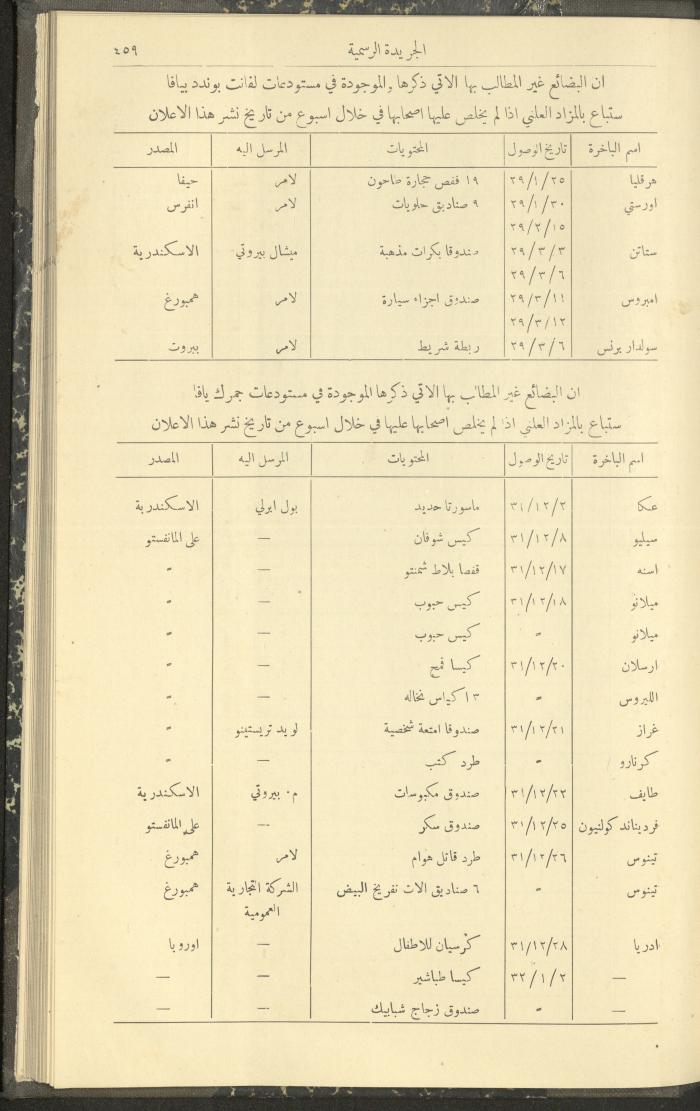 الجريدة الرسمية ٤٥٩
ان البضائع غير المطالب بها الاتي ذكرها والموجودة في مستودعات لفانت بوندد بيافا
ستباع بالمزاد العلني اذا لم يخلص عليها اصحابها في خلال اسبوع من تاريخ نشر هذا الاعلان
اسم الباخرة تاريخ الوصول المحتويات المرسل اليه المصدر
هرقليا ٢٩/١/٢٥ ١٩ قفص حجارة طاحون لامر حيفا
اورستي ٢٩/١/٣٠ ٩ صناديق حلويات لامر انفرس
٢٩/٢/١٥
ستاتن ٢٩/٣/٣ صندوقا بكرات مذهبة ميشال بيروتي الاسكندرية
٢٩/٣/٦
امبروس ٢٩/٣/١١ صندوق اجزاء سيارة لامر همبورغ
٢٩/٣/١٢
سولدار برنس ٢٩/٣/٦ ربطة شريط لامر بيروت
ان البضائع غير المطالب بها الاتي ذكرها الموجودة في مستودعات جمرك يافا
ستباع بالمزاد العلني اذا لم يخلص اصحابها عليها في خلال اسبوع من تاريخ نشر هذا الاعلان
اسم الباخرة تاريخ الوصول المحتويات المرسل اليه المصدر
عكا ٣١/١٢/٢ ماسورتا حديد بول ابرلي الاسكندرية
سيليو ٣١/١٢/٨ كيس شوفان — على المانفستو
اسنه ٣١/١٢/١٧ قفصا بلاط شمنتو — "
ميلانو ٣١/١٢/١٨ كيس حبوب — "
ميلانو " كيس حبوب — "
ارسلان ٣١/١٢/٢٠ كيسا قمح — "
الليروس " ١٣ كياس نخاله — "
غراز ٣١/١٢/٢١ صندوقا امتعة شخصية لويد تريستينو "
كرنارو " طرد كتب — "
طايف ٣١/١٢/٢٢ صندوق مكبوسات م. بيروتي الاسكندرية
فرديناند كولنيون ٣١/١٢/٢٥ صندوق سكر — على المانفستو
تينوس ٣١/١٢/٢٦ طرد قاتل هوام لامر همبورغ
تينوس " ٦ صناديق الات تفريخ البيض الشركة التجارية همبورغ
العمومية
ادريا ٣١/١٢/٢٨ كرسيان للاطفال — اوروبا
— ٣٢/١/٢ كيسا طباشير — —
— " صندوق زجاج شبابيك — —